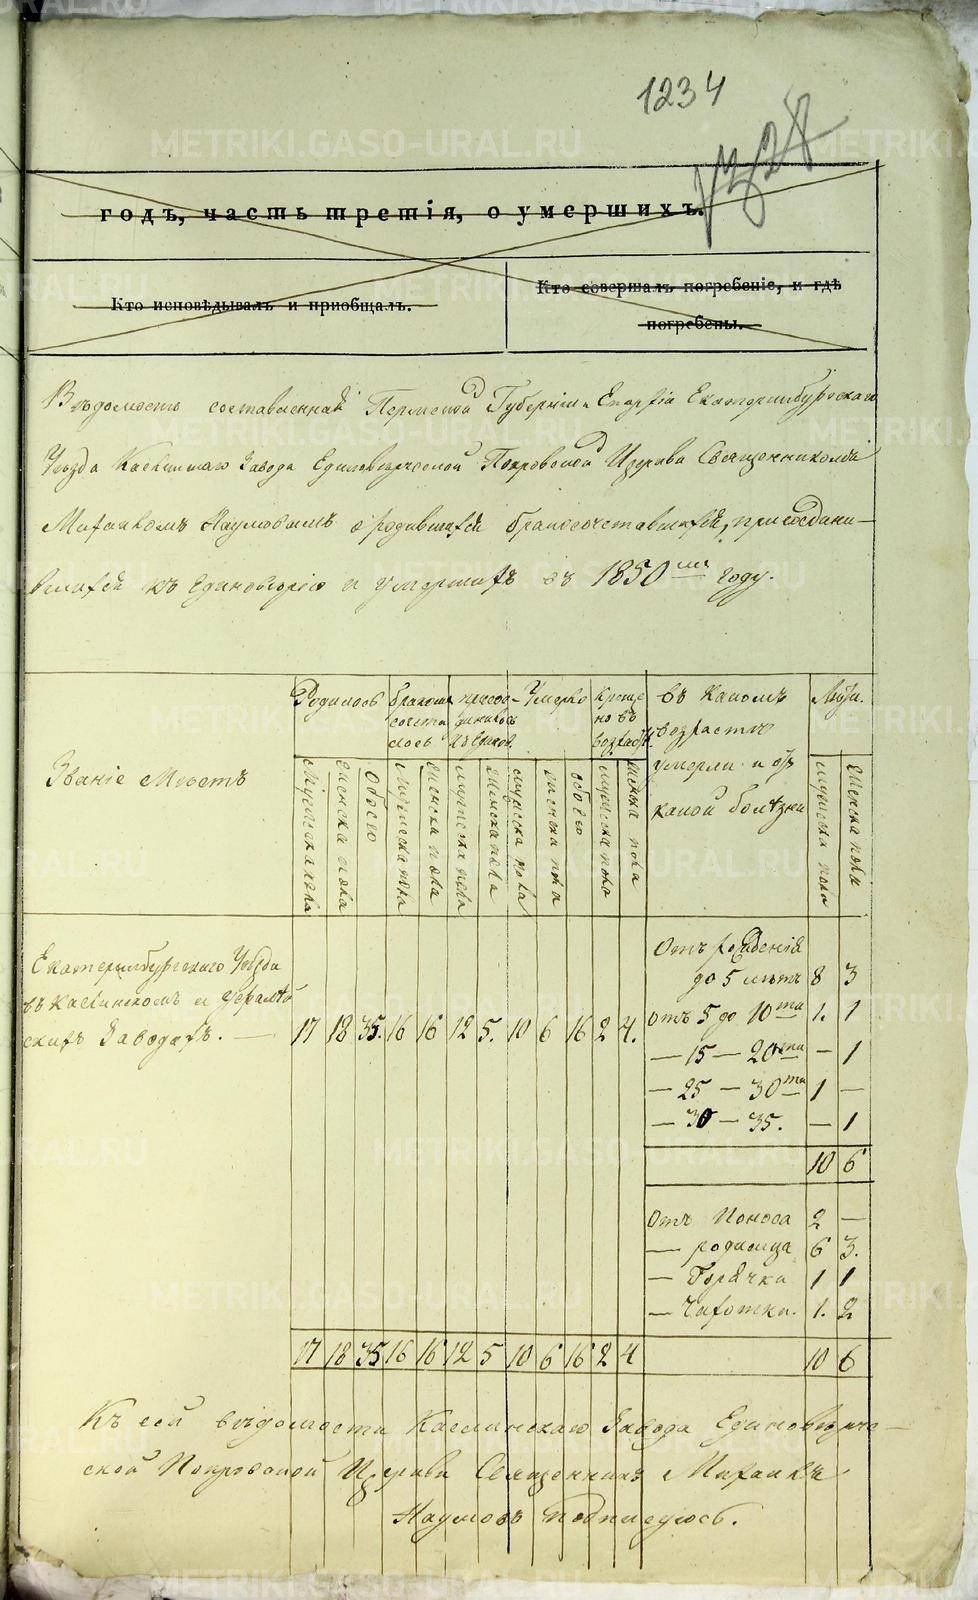 1234
годъ, часть третія, о умершихъ.
Кто исповѣдывалъ и пріобщалъ.
Кто совершалъ погребеніе, и гдѣ
погребены.
Вѣдомость составленная Пермской Губерніи и Епархіи Екатеринбургскаго
Уѣзда Каслинскаго Завода Единовѣрческой Покровской Церкви Священникомъ
Михаиломъ Наумовымъ о родившихся бракосочетавшихся, присоедини-
вшихся къ Единовѣрію и умершихъ въ 1850мъ году.
Званіе Мѣстъ
Родилось
бракосочеталось
присоединилось къ Единов.
Умерло
Крещено въ возраст.
въ какомъ
возрастѣ
умерли и отъ
какой болѣзни
Мужеска пола
Женска пола
Обоего
Мужеска пола
Женска пола
Мужеска пола
Женска пола
Мужеска пола
Женска пола
обоего
Мужеска пола
Женска пола
Мужеска пола
Женска пола
Екатеринбургскаго Уѣзда
въ Каслинскомъ и
скихъ Заводахъ.
17 18 35. 16 16 12 5. 10 6 16 2 4.
Отъ рожденія
до 5 лѣтъ 8 3
Отъ 5 до 10ти 1. 1
— 15 — 20ти — 1
— 25 — 30ти 1 —
— 30 — 35. — 1
10 6
Отъ Поноса 2 —
— родимца 6 3.
— Горячки 1 1
— Чахотки. 1. 2
17 18 35 16 16 12 5 10 6 16 2 4 10 6
Къ сей вѣдомости Каслинскаго Завода Единовѣрче-
ской Покровской Церкви Священникъ Михаилъ
Наумовъ подписуюсь.
METRIKI.GASO-URAL.RU